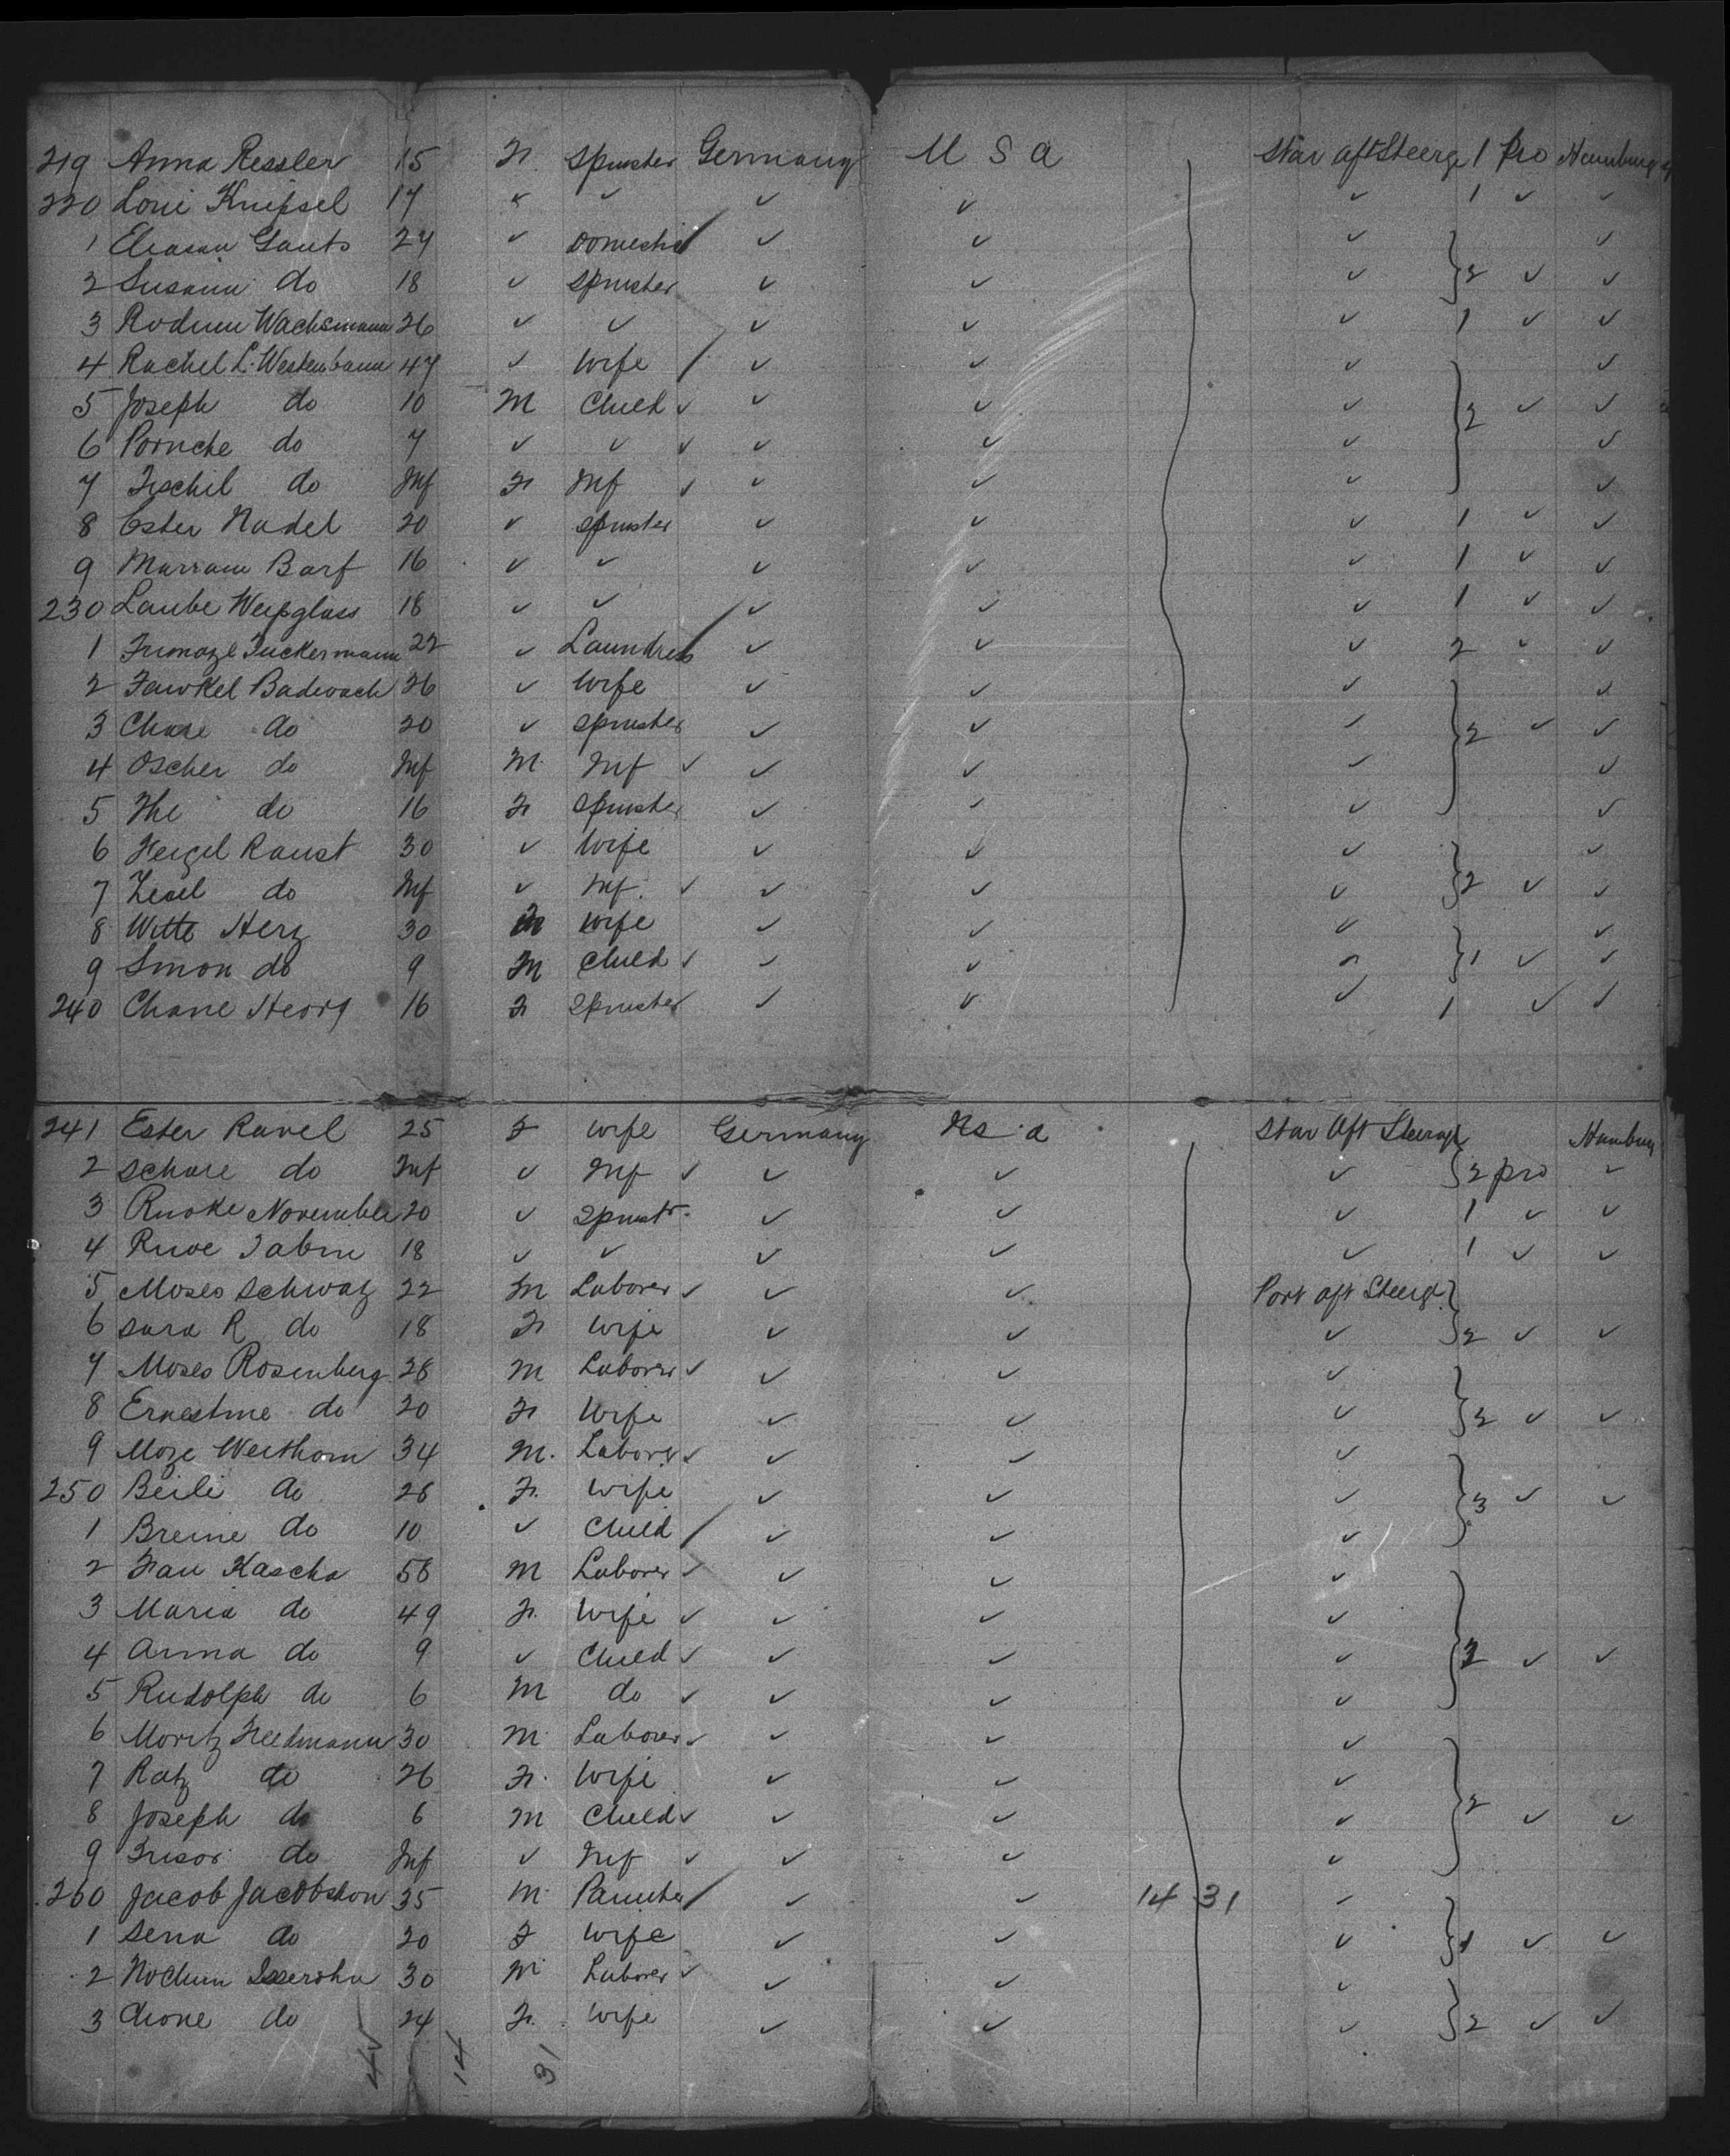 219 Anna Ressler 15 F. Spinster Germany U S a Star aft Steerge 1 pro Hamburg
220 Loui Knipsel 17 ✓ ✓ ✓ ✓ ✓ 1 ✓ ✓
1 Gauts 24 ✓ Domestic ✓ ✓ ✓ ✓
2 Susann do 18 ✓ Spinster ✓ ✓ ✓ 2 ✓ ✓
3 Wachsmann 26 ✓ ✓ ✓ ✓ ✓ 1 ✓ ✓
4 Rachel L. Westenbaum 47 ✓ Wife / ✓ ✓ ✓ ✓
5 Joseph do 10 M Child ✓ ✓ ✓ ✓ 2 ✓ ✓
6 do 7 ✓ ✓ ✓ ✓ ✓ ✓ ✓
7 Fischil do Inf F Inf ✓ ✓ ✓ ✓ ✓
8 Ester Nadel 20 ✓ Spinster ✓ ✓ ✓ 1 ✓ ✓
9 Barf 16 ✓ ✓ ✓ ✓ ✓ 1 ✓ ✓
230 Laube 18 ✓ ✓ ✓ ✓ ✓ 1 ✓ ✓
1 Zuckermann 22 ✓ Laundress ✓ ✓ ✓ 2 ✓ ✓
2 26 ✓ Wife ✓ ✓ ✓ ✓
3 do 20 ✓ Spinster ✓ ✓ ✓ 2 ✓ ✓
4 Oscher do Inf M. Inf ✓ ✓ ✓ ✓ ✓
5 do 16 F Spinster ✓ ✓ ✓ ✓
6 Raust 30 ✓ Wife ✓ ✓ ✓ ✓
7 do Inf ✓ Inf. ✓ ✓ ✓ ✓ 2 ✓ ✓
8 Witte Herz 30 F Wife ✓ ✓ ✓ ✓
9 Simon do 9 M Child ✓ ✓ ✓ ✓ 1 ✓ ✓
240 Chane 16 F Spinster ✓ ✓ ✓ 1 ✓ ✓
241 Ester Ravel 25 F Wife Germany U s a Star Aft Steerage Hamburg
2 Schare do Inf ✓ Inf ✓ ✓ ✓ ✓ 2 pro ✓
3 November 20 ✓ Spinstr. ✓ ✓ ✓ 1 ✓ ✓
4 18 ✓ ✓ ✓ ✓ ✓ 1 ✓ ✓
5 Moses Schwatz 22 M Laborer ✓ ✓ ✓ Port aft Steerge
6 Sara R do 18 F. Wife ✓ ✓ ✓ 2 ✓ ✓
7 Moses Rosenberg 28 M Laborer ✓ ✓ ✓ ✓
8 Ernestine do 20 F. Wife ✓ ✓ ✓ 2 ✓ ✓
9 Moze Werthorn 34 M. Laborer ✓ ✓ ✓ ✓
250 Beili do 28 F. Wife ✓ ✓ ✓ 3 ✓ ✓
1 Breine do 10 ✓ Child / ✓ ✓ ✓
2 Kascha 58 M Laborer ✓ ✓ ✓ ✓
3 Maria do 49 F. Wife ✓ ✓ ✓ ✓
4 Anna do 9 ✓ Child ✓ ✓ ✓ ✓ 3 ✓ ✓
5 Rudolph do 6 M do ✓ ✓ ✓ ✓
6 Moritz 30 M. Laborer ✓ ✓ ✓ ✓
7 Ratz do 26 F. Wife ✓ ✓ ✓
8 Joseph do 6 M Child ✓ ✓ ✓ ✓ 2 ✓ ✓
9 do Inf ✓ Inf ✓ ✓ ✓ ✓
260 Jacob Jacobshon 35 M. Painter / ✓ ✓ 14 31 ✓
1 Sena do 20 F Wife ✓ ✓ ✓ 1 ✓ ✓
2 Nochum 30 M. Laborer ✓ ✓ ✓ ✓
3 Chone do 24 F. Wife ✓ ✓ ✓ 2 ✓ ✓
14
31